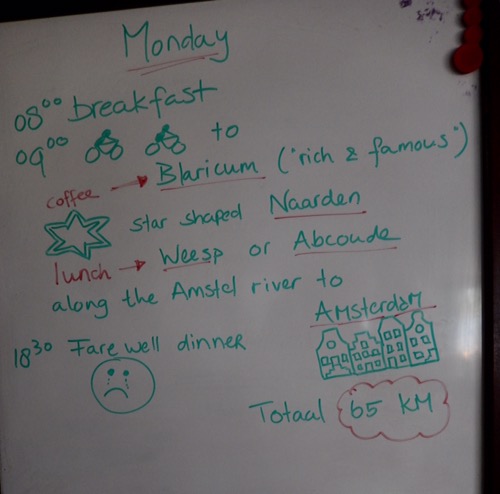 Monday
08⁰⁰ breakfast
09⁰⁰ to
coffee → Blaricum ("rich & famous")
star shaped Naarden
lunch → Weesp or Abcoude
along the Amstel river to
Amsterdam
18³⁰ Fare well dinner
Totaal 65 KM